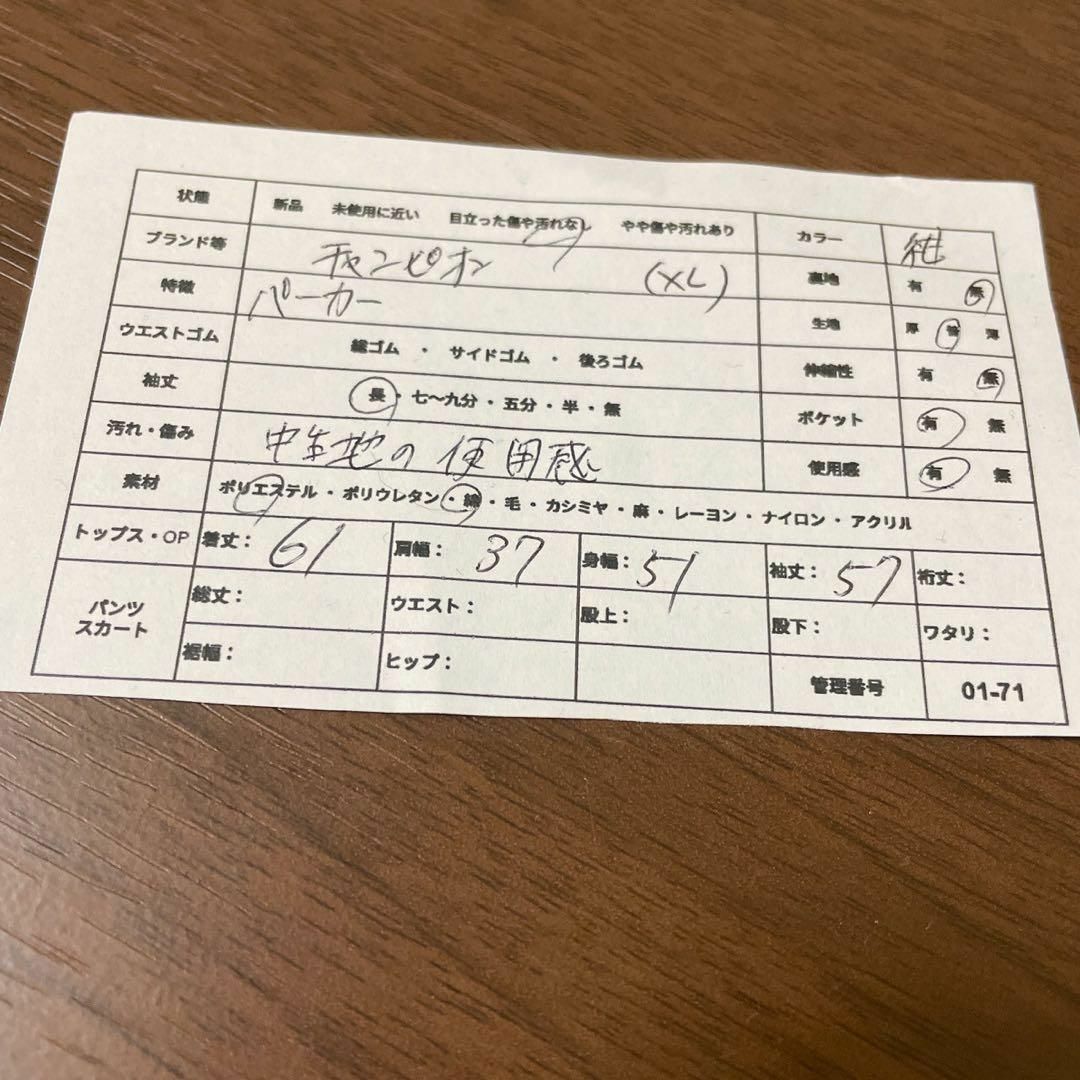 状態 新品 未使用に近い 目立った傷や汚れなし やや傷や汚れあり カラー 紺
ブランド等 チャンピオン (XL) 裏地 有 無
特徴 パーカー 生地 厚 普 薄
ウエストゴム 総ゴム ・ サイドゴム ・ 後ろゴム 伸縮性 有 無
袖丈 長・七〜九分・五分・半・無 ポケット 有 無
汚れ・傷み 中生地の使用感 使用感 有 無
素材 ポリエステル・ポリウレタン・綿・毛・カシミヤ・麻・レーヨン・ナイロン・アクリル
トップス・OP 着丈： 61 肩幅： 37 身幅： 51 袖丈： 57 裄丈：
パンツ スカート 総丈： ウエスト： 股上： 股下： ワタリ：
裾幅： ヒップ： 管理番号 01-71